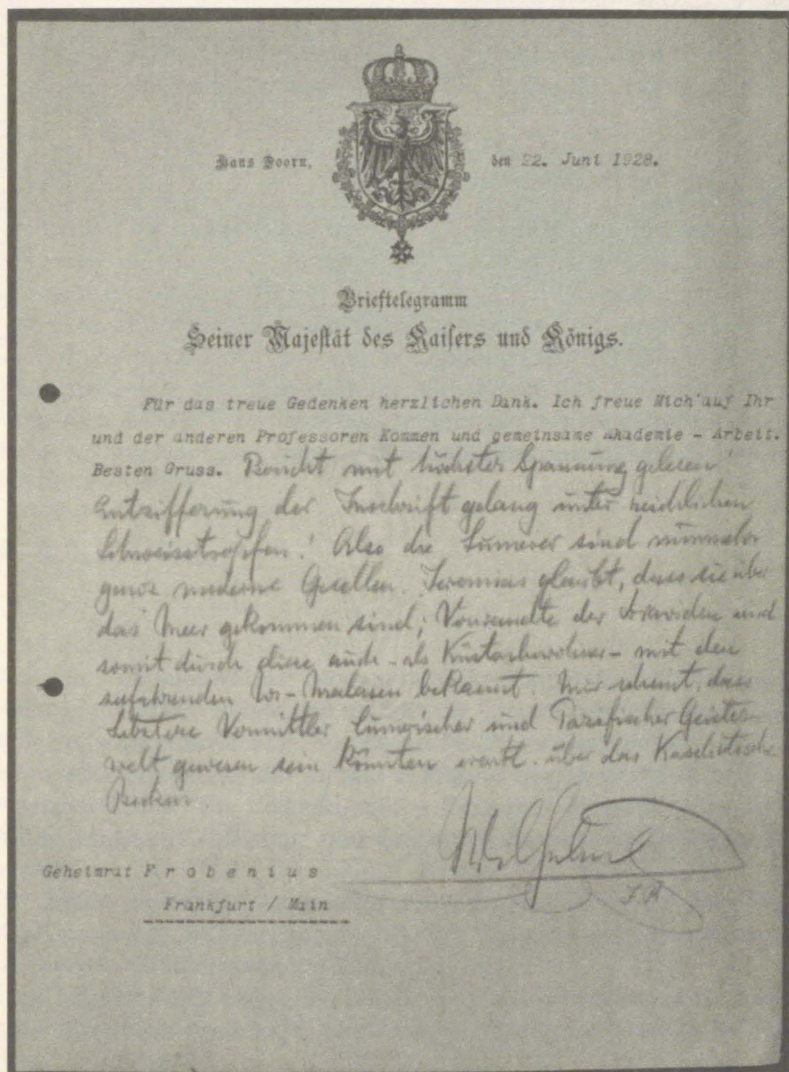 Haus Doorn, den 22. Juni 1928.
Brieftelegramm
Seiner Majestät des Kaisers und Königs.
Für das treue Gedenken herzlichen Dank. Ich freue Mich auf Ihr
und der anderen Professoren Kommen und gemeinsame Akademie - Arbeit.
Besten Gruss. Bericht mit höchster Spannung gelesen!
Entzifferung der Inschrift gelang unter
Schweisstropfen! Also die Sumerer sind nunmehr
ganz moderne Gesellen. Jeremias glaubt, dass sie über
das Meer gekommen sind; Verwandte der und
somit durch diese auch - als Küstenbewohner - mit den
seefahrenden Ur-Malaien bekannt. Mir scheint, dass
Letztere Vermittler Sumerischer und Pazifischer Geistes-
welt gewesen sein könnten evertl. über das
Becken.
Wilhelm
I.R
Geheimrat Frobenius
Frankfurt / Main